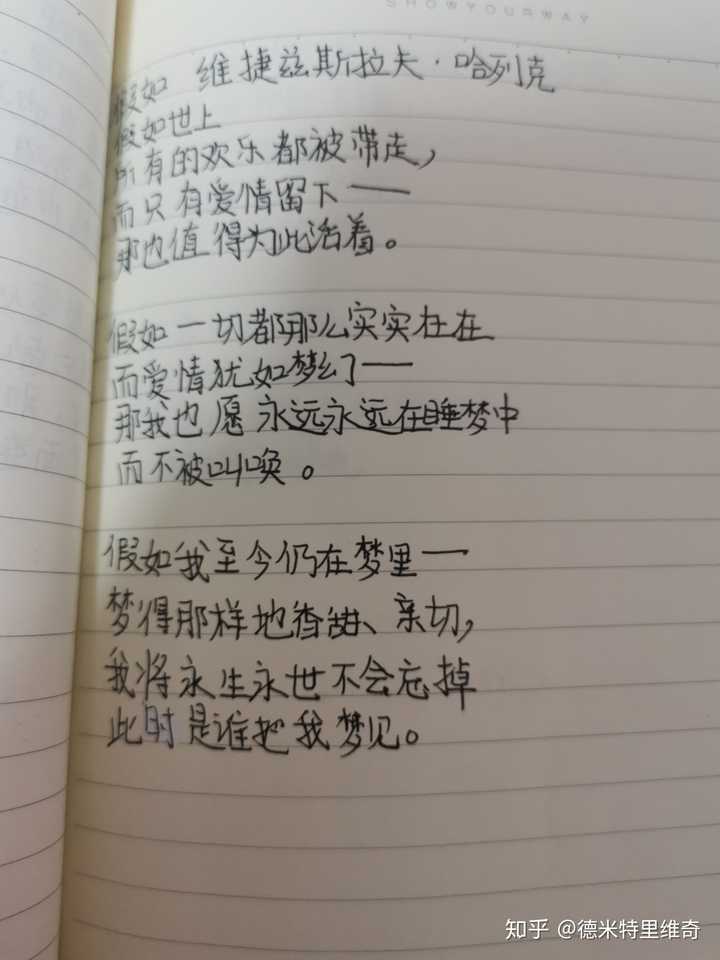 SHOWYOURWAY
假如 维捷兹斯拉夫·哈列克
假如世上
所有的欢乐都被带走，
而只有爱情留下——
那也值得为此活着。
假如一切都那么实实在在
而爱情犹如梦幻——
那我也愿永远永远在睡梦中
而不被叫唤。
假如我至今仍在梦里——
梦得那样地香甜、亲切，
我将永生永世不会忘掉
此时是谁把我梦见。
知乎 @德米特里维奇